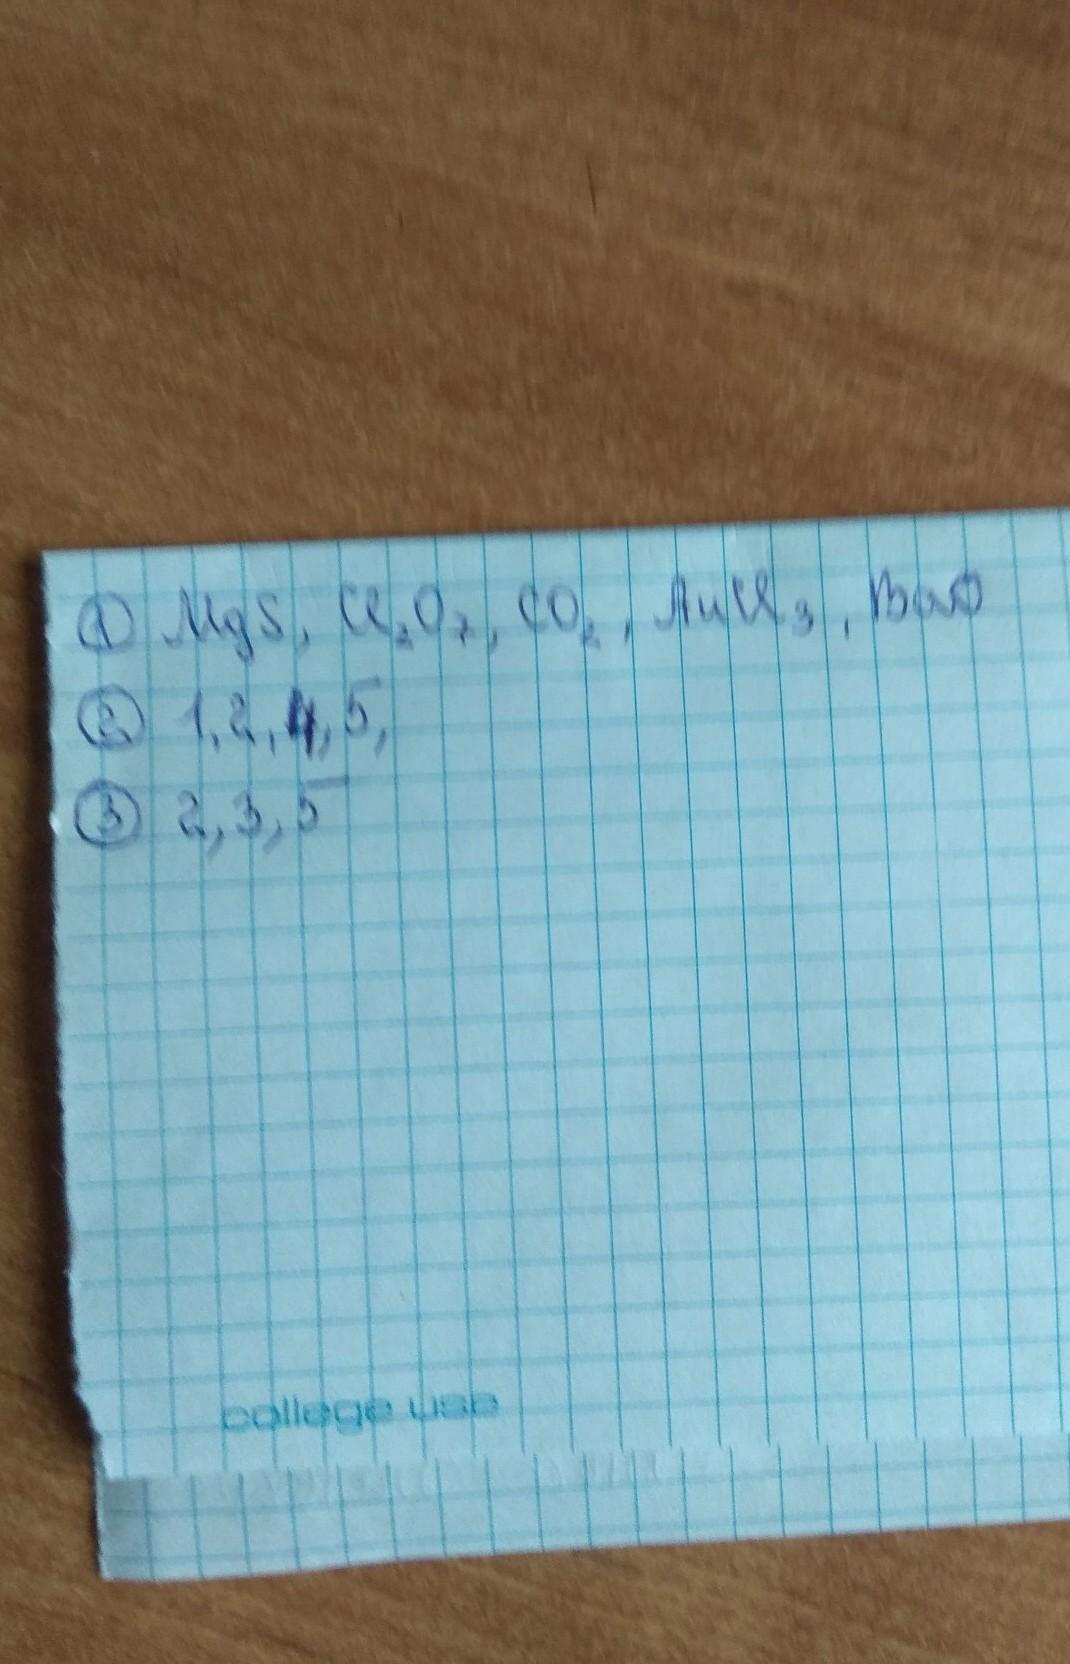 ① MgS, Cl₂O₇, CO₂, AuCl₃, BaO
② 1,2,4,5,
③ 2,3,5
college use